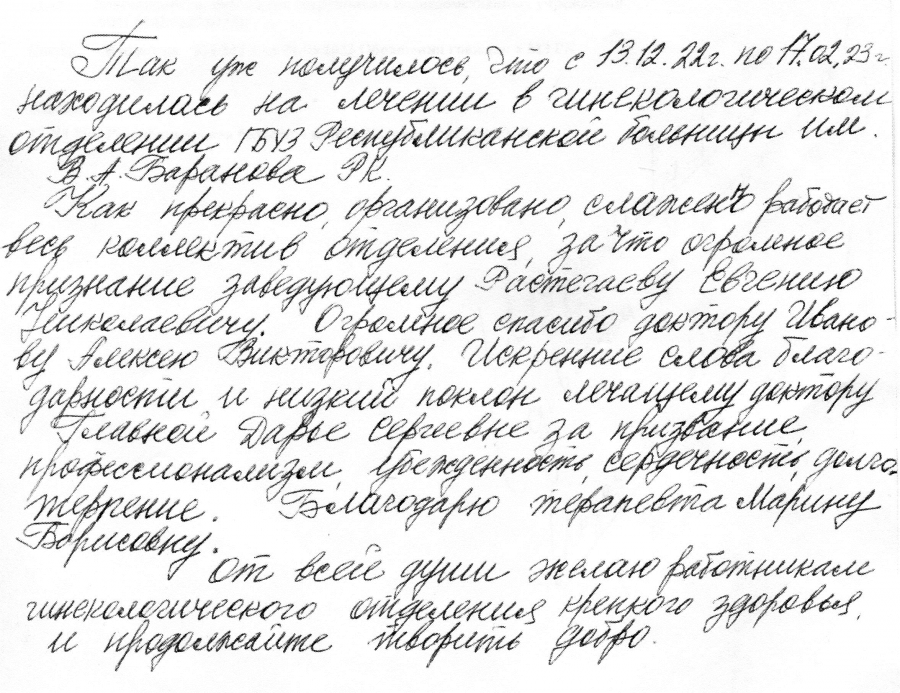 Так уж получилось, что с 13.12.22г. по 17.02.23г
находилась на лечении в гинекологическом
отделении ГБУЗ Республиканской больницы им.
В.А. Баранова РК.
Как прекрасно, организовано, слаженно работает
весь коллектив отделения, за что огромное
признание заведующему Растегаеву Евгению
Николаевичу. Огромное спасибо доктору Ивано-
ву Алексею Викторовичу. Искренние слова благо-
дарности и низкий поклон лечащему доктору
Главной Дарье Сергеевне за призвание,
профессионализм, убеждённость, сердечность, долго-
терпение. Благодарю терапевта Марину
Борисовну.
От всей души желаю работникам
гинекологического отделения крепкого здоровья,
и продолжайте творить добро.